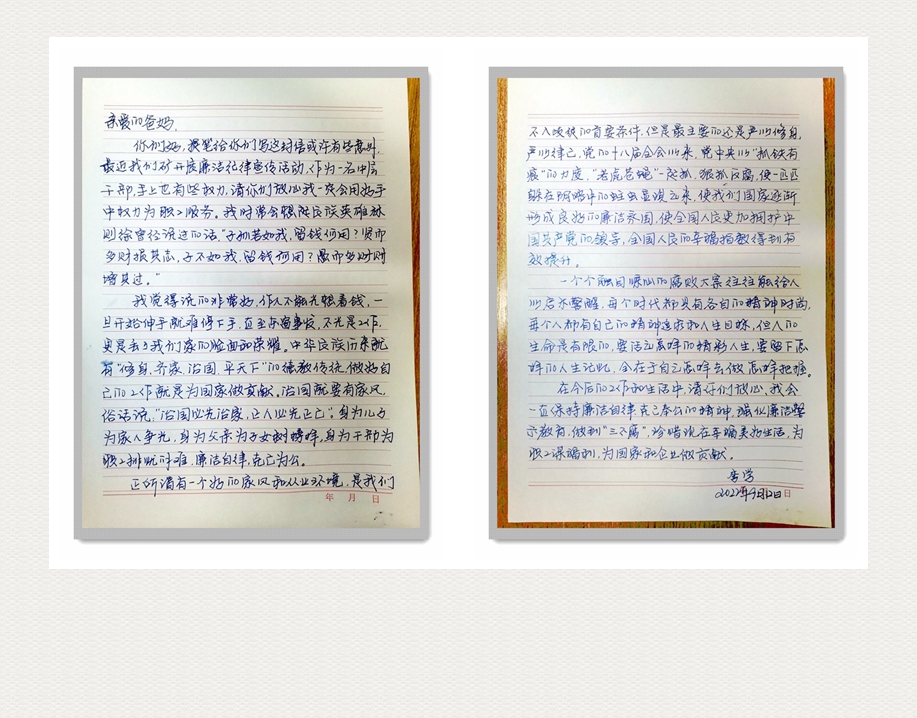 亲爱的爸妈,
你们好,提笔给你们写这封信或许有些意外,
最近我们矿开展廉洁纪律宣传活动,作为一名中层
干部,手上也有些权力,请你们放心我一定会用好手
中权力为职工服务。我时常会想起民族英雄林
则徐曾经说过的话,“子孙若如我,留钱何用?贤而
多财损其志,子不如我,留钱何用?愚而多财
增其过。”
我觉得说的非常好,作人不能光想着钱,一
旦开始伸手就难停下手,直至东窗事发,不光是工作,
更是丢了我们家的脸面和荣耀。中华民族而来就
有“修身、齐家、治国、平天下”的德教传统,做好自
己的工作就是为国家做贡献。治国就要有家风,
俗话说,“治国必先治家,正人必先正己”;身为儿子
为家人争光,身为父亲为子女树榜样,身为干部为
职工排忧解难,廉洁自律,克己为公。
正所谓有一个好的家风和从业环境,是我们
年 月 日
不入歧使的首要条件,但是最主要的还是严以修身,
严以律己,党的十八届全会以来,党中央以“抓铁有
痕”的力度,“老虎苍蝇”一起抓,狠抓反腐,使一匹匹
躲在阴暗中的蛀虫显现出来,使我们国家逐渐
形成良好的廉洁氛围,使全国人民更加拥护中
国共产党的领导,全国人民的幸福指数得到有
效提升。
一个个触目惊心的腐败大案往往能给人
以启示警醒,每个时代都具有各自的精神时尚,
每个人都有自己的精神追求和人生目标,但人的
生命是有限的,要活出怎样的精彩人生,要留下怎
样的人生记忆,全在于自己怎样去做怎样把握。
在今后的工作和生活中,请你们放心,我会
一直保持廉洁自律克己奉公的精神,强化廉洁警
示教育,做到“三不腐”,珍惜现在幸福美好生活,为
职工谋福利,为国家和企业做贡献。
2022年9月12日
日